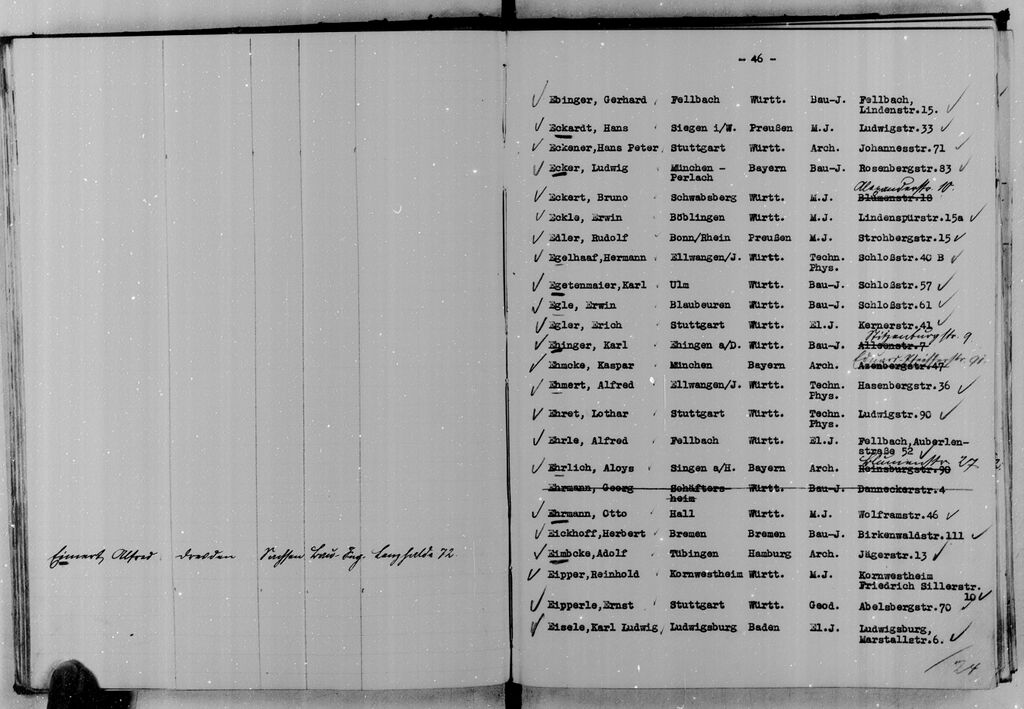 Einert, Alfred Dresden Sachsen Bau-Ing. Lenzhalde 72
- 46 -
✓ Ebinger, Gerhard Fellbach Württ. Bau-J. Fellbach, ✓
Lindenstr.15.
✓ Eckardt, Hans Siegen i/W. Preußen M.J. Ludwigstr.33 ✓
✓ Eckener,Hans Peter Stuttgart Württ. Arch. Johannesstr.71 ✓
✓ Ecker, Ludwig München - Bayern Bau-J. Rosenbergstr.83 ✓
Perlach
Alexanderstr. 10
✓ Eckert, Bruno Schwabsberg Württ. M.J. Blumenstr.18
✓ Eckle, Erwin Böblingen Württ. M.J. Lindenspürstr.15a ✓
✓ Edler, Rudolf Bonn/Rhein Preußen M.J. Strohbergstr.15 ✓
✓ Egelhaaf,Hermann Ellwangen/J. Württ. Techn. Schloßstr.40 B ✓
Phys.
✓ Egetenmaier,Karl Ulm Württ. Bau-J. Schloßstr.57 ✓
✓ Egle, Erwin Blaubeuren Württ. Bau-J. Schloßstr.61 ✓
✓ Egler, Erich Stuttgart Württ. El.J. Kernerstr.41 ✓
Stitzenburgstr. 9
✓ Ehinger, Karl Ehingen a/D. Württ. Bau-J. Alleenstr.7
✓ Ehmcke, Kaspar München Bayern Arch. Azenbergstr.47
✓ Ehmert, Alfred Ellwangen/J. Württ. Techn. Hasenbergstr.36 ✓
Phys.
✓ Ehret, Lothar Stuttgart Württ. Techn. Ludwigstr.90 ✓
Phys.
✓ Ehrle, Alfred Fellbach Württ. El.J. Fellbach,Auberlen-
straße 52 ✓
Blumenstr. 27
✓ Ehrlich, Aloys Singen a/H. Bayern Arch. Reinsburgstr.90
Ehrmann, Georg Schäfters- Württ. Bau-J. Danneckerstr.4
heim
✓ Ehrmann, Otto Hall Württ. M.J. Wolframstr.46 ✓
✓ Eickhoff,Herbert Bremen Bremen Bau-J. Birkenwaldstr.111 ✓
✓ Eimbcke,Adolf Tübingen Hamburg Arch. Jägerstr.13 ✓
✓ Eipper,Reinhold Kornwestheim Württ. M.J. Kornwestheim
Friedrich Sillerstr.
10 ✓
✓ Eipperle,Ernst Stuttgart Württ. Geod. Abelsbergstr.70 ✓
✓ Eisele,Karl Ludwig Ludwigsburg Baden El.J. Ludwigsburg,
Marstallstr.6. ✓
/24